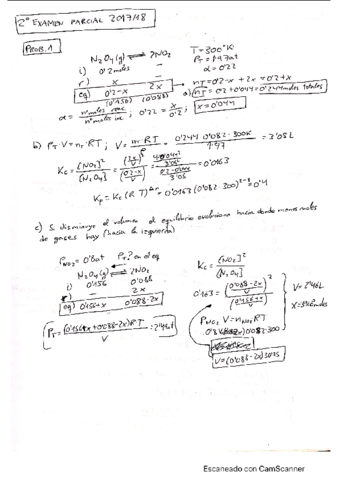 2º EXAMEN PARCIAL 2017/18
PROB. 1
N2O4(g) ⇌ 2NO2
T = 300°K
α = 0'22
i) 0'2 moles —
r) x —
eq) 0'2-x 2x
(0'156) (0'088)
nT = 0'2-x + 2x = 0'2+x
a) nT = 0'2+0'044 = 0'244 moles totales
α = nº moles reac / nº moles ini ; 0'22 = x / 0'2 ; x = 0'044
b) PT · V = nT · RT ; V = nRT = 0'244 · 0'082 · 300K / 1'97 = 3'05 L
Kc = [NO2]² / [N2O4] = (2x/V)² / (0'2-x/V) = = 0'0163
Kp = Kc (RT)^Δn = 0'0163 (0'082 · 300)^2-1 = 0'4
c) Si disminuye el volumen el equilibrio evoluciona hacia donde menos moles
de gases hay (hacia la izquierda)
PNO2 = 0'8at PT? en el eq
N2O4(g) ⇌ 2NO2
i) 0'156 0'088
r) — 2x
eq) 0'156+x 0'088-2x
PT = (0'156+x+0'088-2x) RT / V = 2'46at
Kc = [NO2]² / [N2O4]
0'163 = (0'088-2x / V)² / (0'156+x / V)
V = 2'46L
PNO2 V = nNO2 RT
V = (0'088-2x) 0'082 · 300
Escaneado con CamScanner